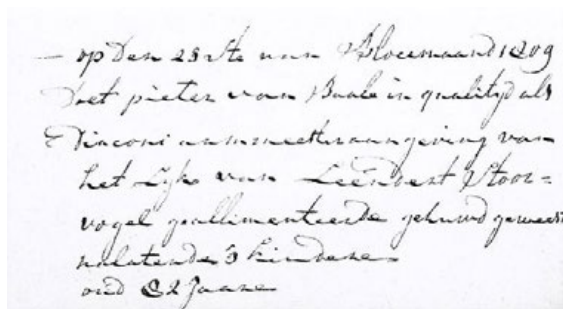 — op Den 23ste van Bloeimaand 1809
Doet pieter van Baale in qualityd als
Diaconi armmeester aangeving van
het Lijk van Leendert Stoor=
vogel geallimenteerde gehuwd geweest
nalatende 3 kindere
oud 82 Jaare